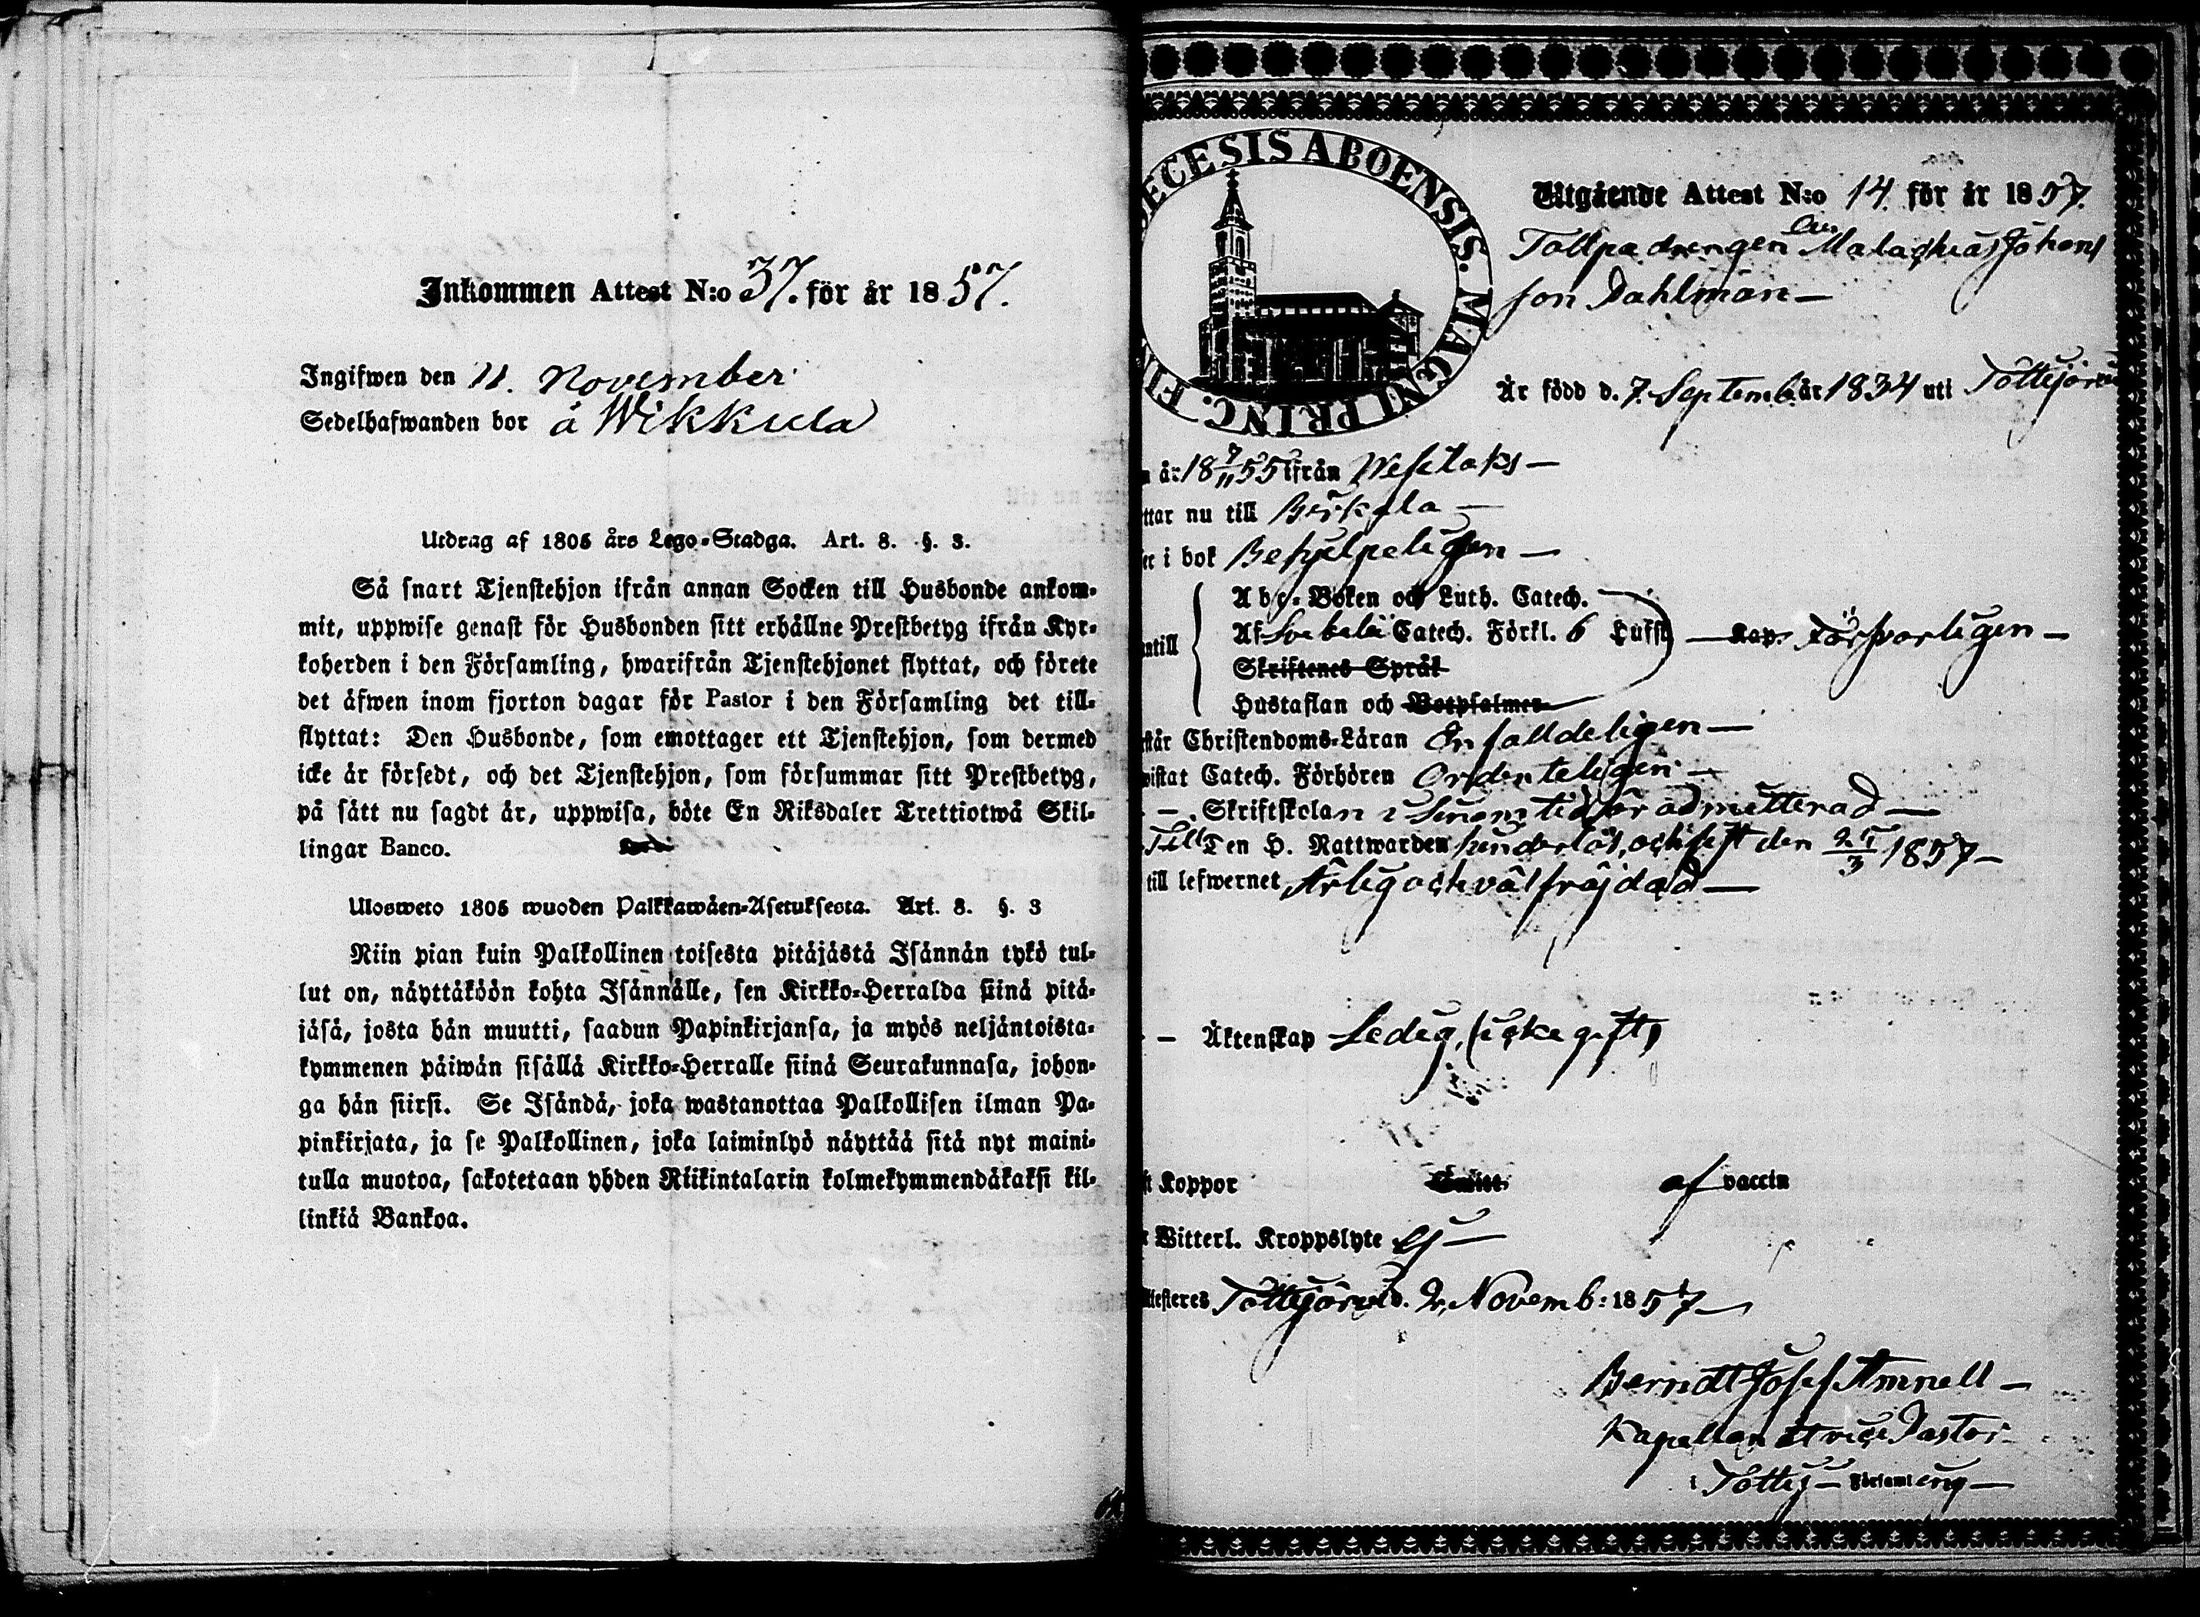 Inkommen Attest N:o 37. för år 1857.
Ingifwen den 11. November
Sedelhafwanden bor å Wikkula
Utdrag af 1805 års Lego-Stadga. Art. 8. §. 3.
Så snart Tjenstehjon ifrån annan Socken till Husbonde ankom-
mit, uppwise genast för Husbonden sitt erhållne Prestbetyg ifrån Kyr-
koherden i den Församling, hwarifrån Tjenstehjonet flyttat, och förete
det äfwen inom fjorton dagar för Pastor i den Församling det till-
flyttat: Den Husbonde, som emottager ett Tjenstehjon, som dermed
icke är försedt, och det Tjenstehjon, som försummar sitt Prestbetyg,
på sätt nu sagdt är, uppwisa, böte En Riksdaler Trettiotwå Skil-
lingar Banco.
Ulosweto 1805 wuoden Palkkawäen-Asetuksesta. Art. 8. §. 3
Niin pian kuin Palkollinen toisesta pitäjästä Isännän tykö tul-
lut on, näyttäköön kohta Isännälle, sen Kirkko-Herralda siinä pitä-
jäsä, josta hän muutti, saadun Papinkirjansa, ja myös neljäntoista-
kymmenen päiwän sisällä Kirkko-Herralle siinä Seurakunnasa, johon-
ga hän siirsi. Se Isändä, joka wastanottaa Palkollisen ilman Pa-
pinkirjata, ja se Palkollinen, joka laiminlyö näyttää sitä nyt maini-
tulla muotoa, sakotetaan yhden Riikintalarin kolmekymmendäkaksi kil-
linkiä Bankoa.
ECESIS ABOENSIS. MAGNI PRINC. FIN
Utgående Attest N:o 14. för år 1857.
Tottpadrengen Malachias Johans
son Dahlman —
Är född d. 7. Septemb. år 1834 uti Tottijärvi
år 18 7/11 55 ifrån Wesilaks —
ttar nu till Birkala —
er i bok Behjelpeligen —
Abc-Boken och Luth. Catech.
ntill Af Svebelii Catech. Förkl. 6 Luks Kap. Försvarligen —
Skriftenes Språk
Hustaflan och Botpsalmer
står Christendoms-Läran Enfalldeligen —
wistat Catech. Förhören Ordenteligen —
— Skriftskolan i sinom tid är admitterad —
Till Den H. Nattwarden hinderlös, och sist den 25/3 1857 —
till lefwernet Ärlig och välfräjdad —
— Äktenskap Ledig, (icke gift)
ft Koppor af vaccin
Witterl. Kroppslyte Ej —
Attesteres Tottijärvi d. 2. Novemb: 1857 —
Berndt Josef Amnell —
Kapellan et vice Pastor
i Tottij — Församling —